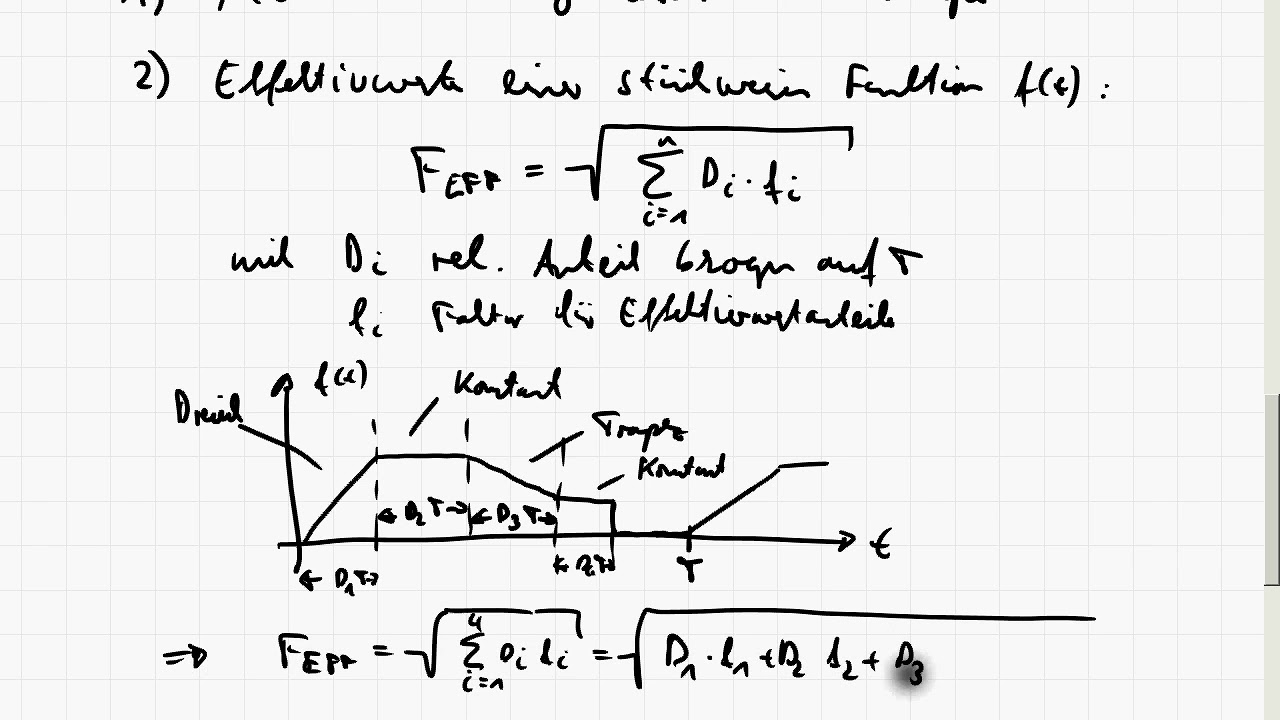 2) Effektivwerte einer stückweisen Funktion f(t):
F_EFF = √(∑_{i=1}^{n} D_i · f_i)
mit D_i rel. Anteil bezogen auf T
f_i Faktor für Effektivwertanteile
f(t)
Konstant
Dreieck
Trapez
Konstant
D_2 T
D_3 T
t
D_1 T
T
⇒ F_EFF = √(∑_{i=1}^{4} D_i f_i) = √(D_1 · f_1 + D_2 f_2 + D_3